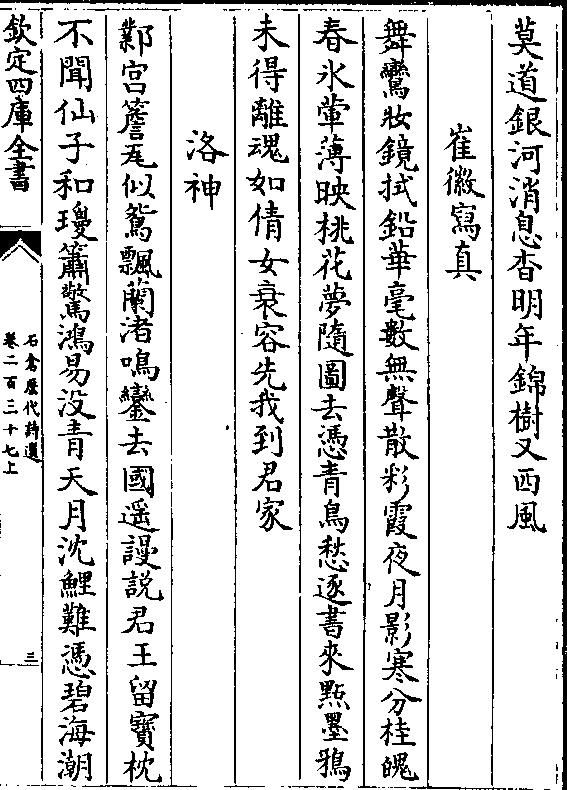 莫道銀河消息杳明年錦樹又西風
崔徽寫真
舞鸞妝鏡拭鉛華毫數無聲散彩霞夜月影寒分桂魄
春氷暈薄映桃花夢隨圖去憑青鳥愁逐書來㸃墨鴉
未得離魂如倩女衰容先我到君家
洛神
鄴宫簷瓦似鴛飄蘭渚鳴鑾去國遥謾説君王留寶枕
不聞仙子和瓊簫驚鴻易没青天月沈鯉難憑碧海潮
欽定四庫全書
石倉歴代詩選
卷二百三十七上
三